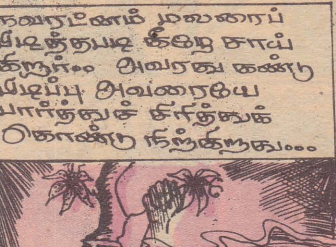 நவரட்னம் மலரைப்
பிடித்தபடி கீழே சாய்
கிறார்.. அவரது கண்டு
பிடிப்பு அவரையே
பார்த்துச் சிரித்துக்
கொண்டு நிற்கிறது...